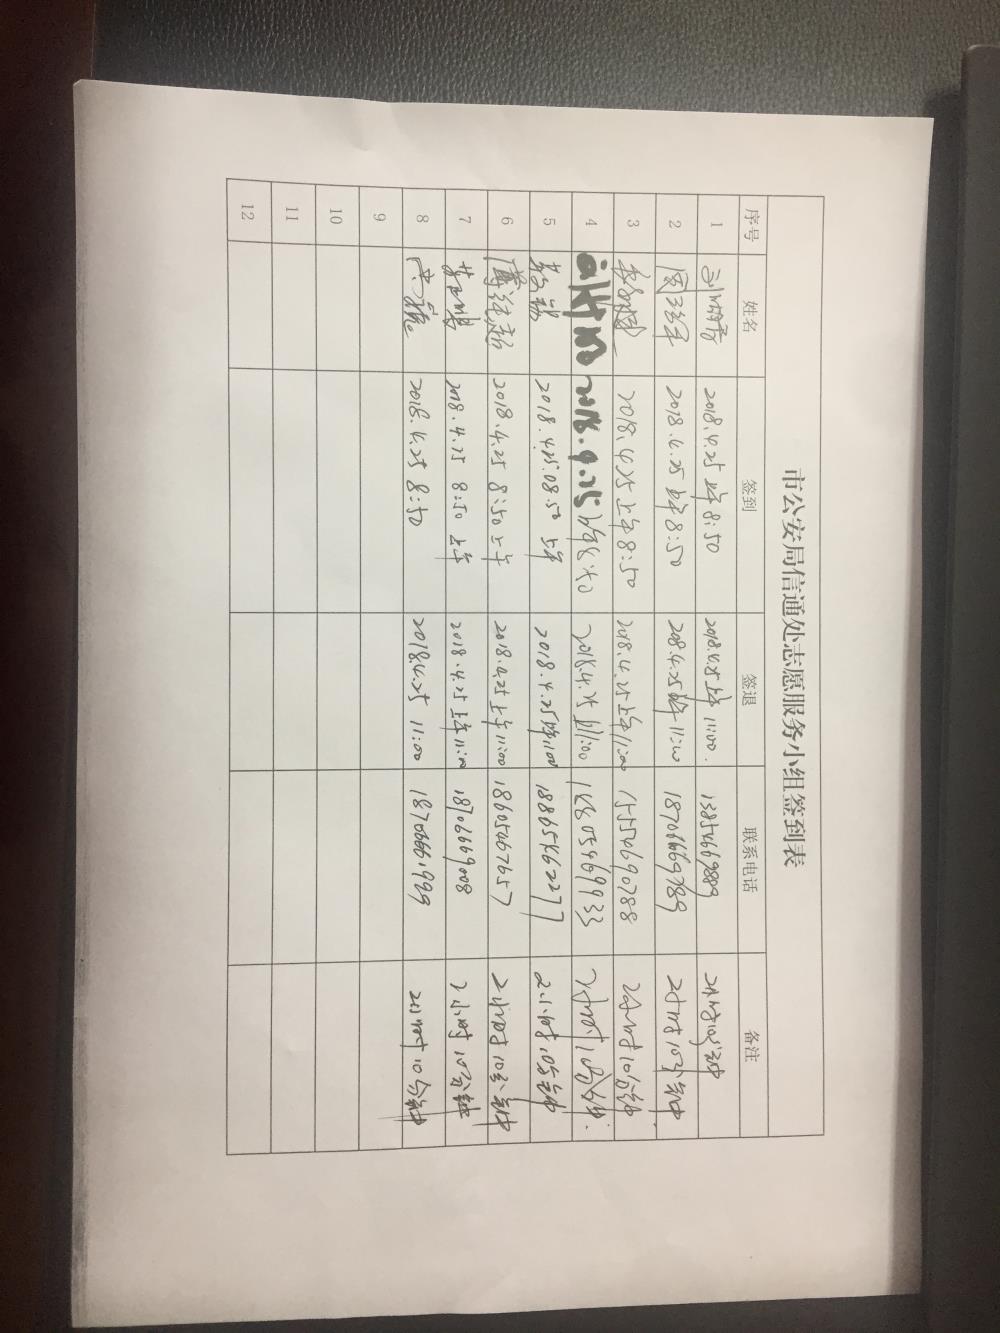 市公安局信通处志愿服务小组签到表
序号 姓名 签到 签退 联系电话 备注
1 2018.4.25 上午 8:50 2018.4.25 上午 11:00. 13854669889 2小时10分钟
2 2018.4.25 上午 8:50 2018.4.25 上午 11:00 18706669789 2小时10分钟
3 2018.4.25 上午 8:50 2018.4.25 上午 11:00 15554690788 2小时10分钟
4 2018.4.25 上午 8:50 2018.4.25 11:00 2小时10分钟.
5 2018.4.25.08.50 上午 2018.4.25 上午 11:00 18865462277 2小时10分钟
6 2018.4.25 8:50 上午 2018.4.25 上午 11:00 18605467657 2小时10分钟
7 2018.4.25 8:50 上午 2018.4.25 上午 11:00 18706669008 2小时10分钟
8 2018.4.25 8:50 2018.4.25 11:00 18706661999 2小时10分钟
9
10
11
12